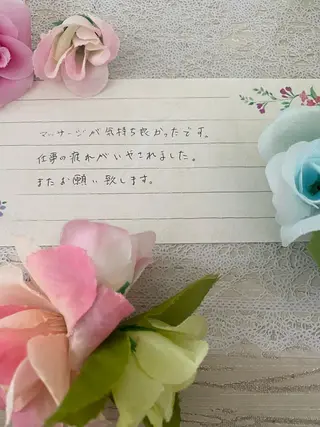 マッサージが気持ち良かったです。
仕事の疲れがいやされました。
またお願い致します。